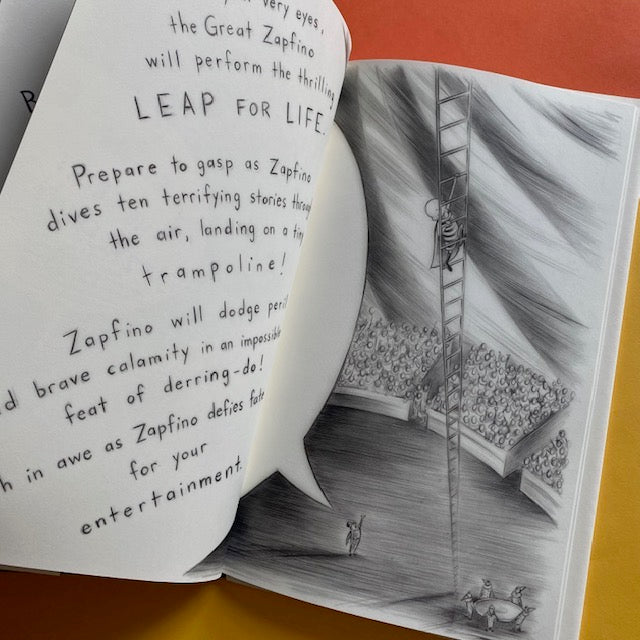 very eyes,
the Great Zapfino
will perform the thrilling
LEAP FOR LIFE.
Prepare to gasp as Zapfino
dives ten terrifying stories
the air, landing on a tiny
trampoline!
Zapfino will dodge peril
brave calamity in an impossible
feat of derring-do!
in awe as Zapfino defies fate
for your
entertainment.